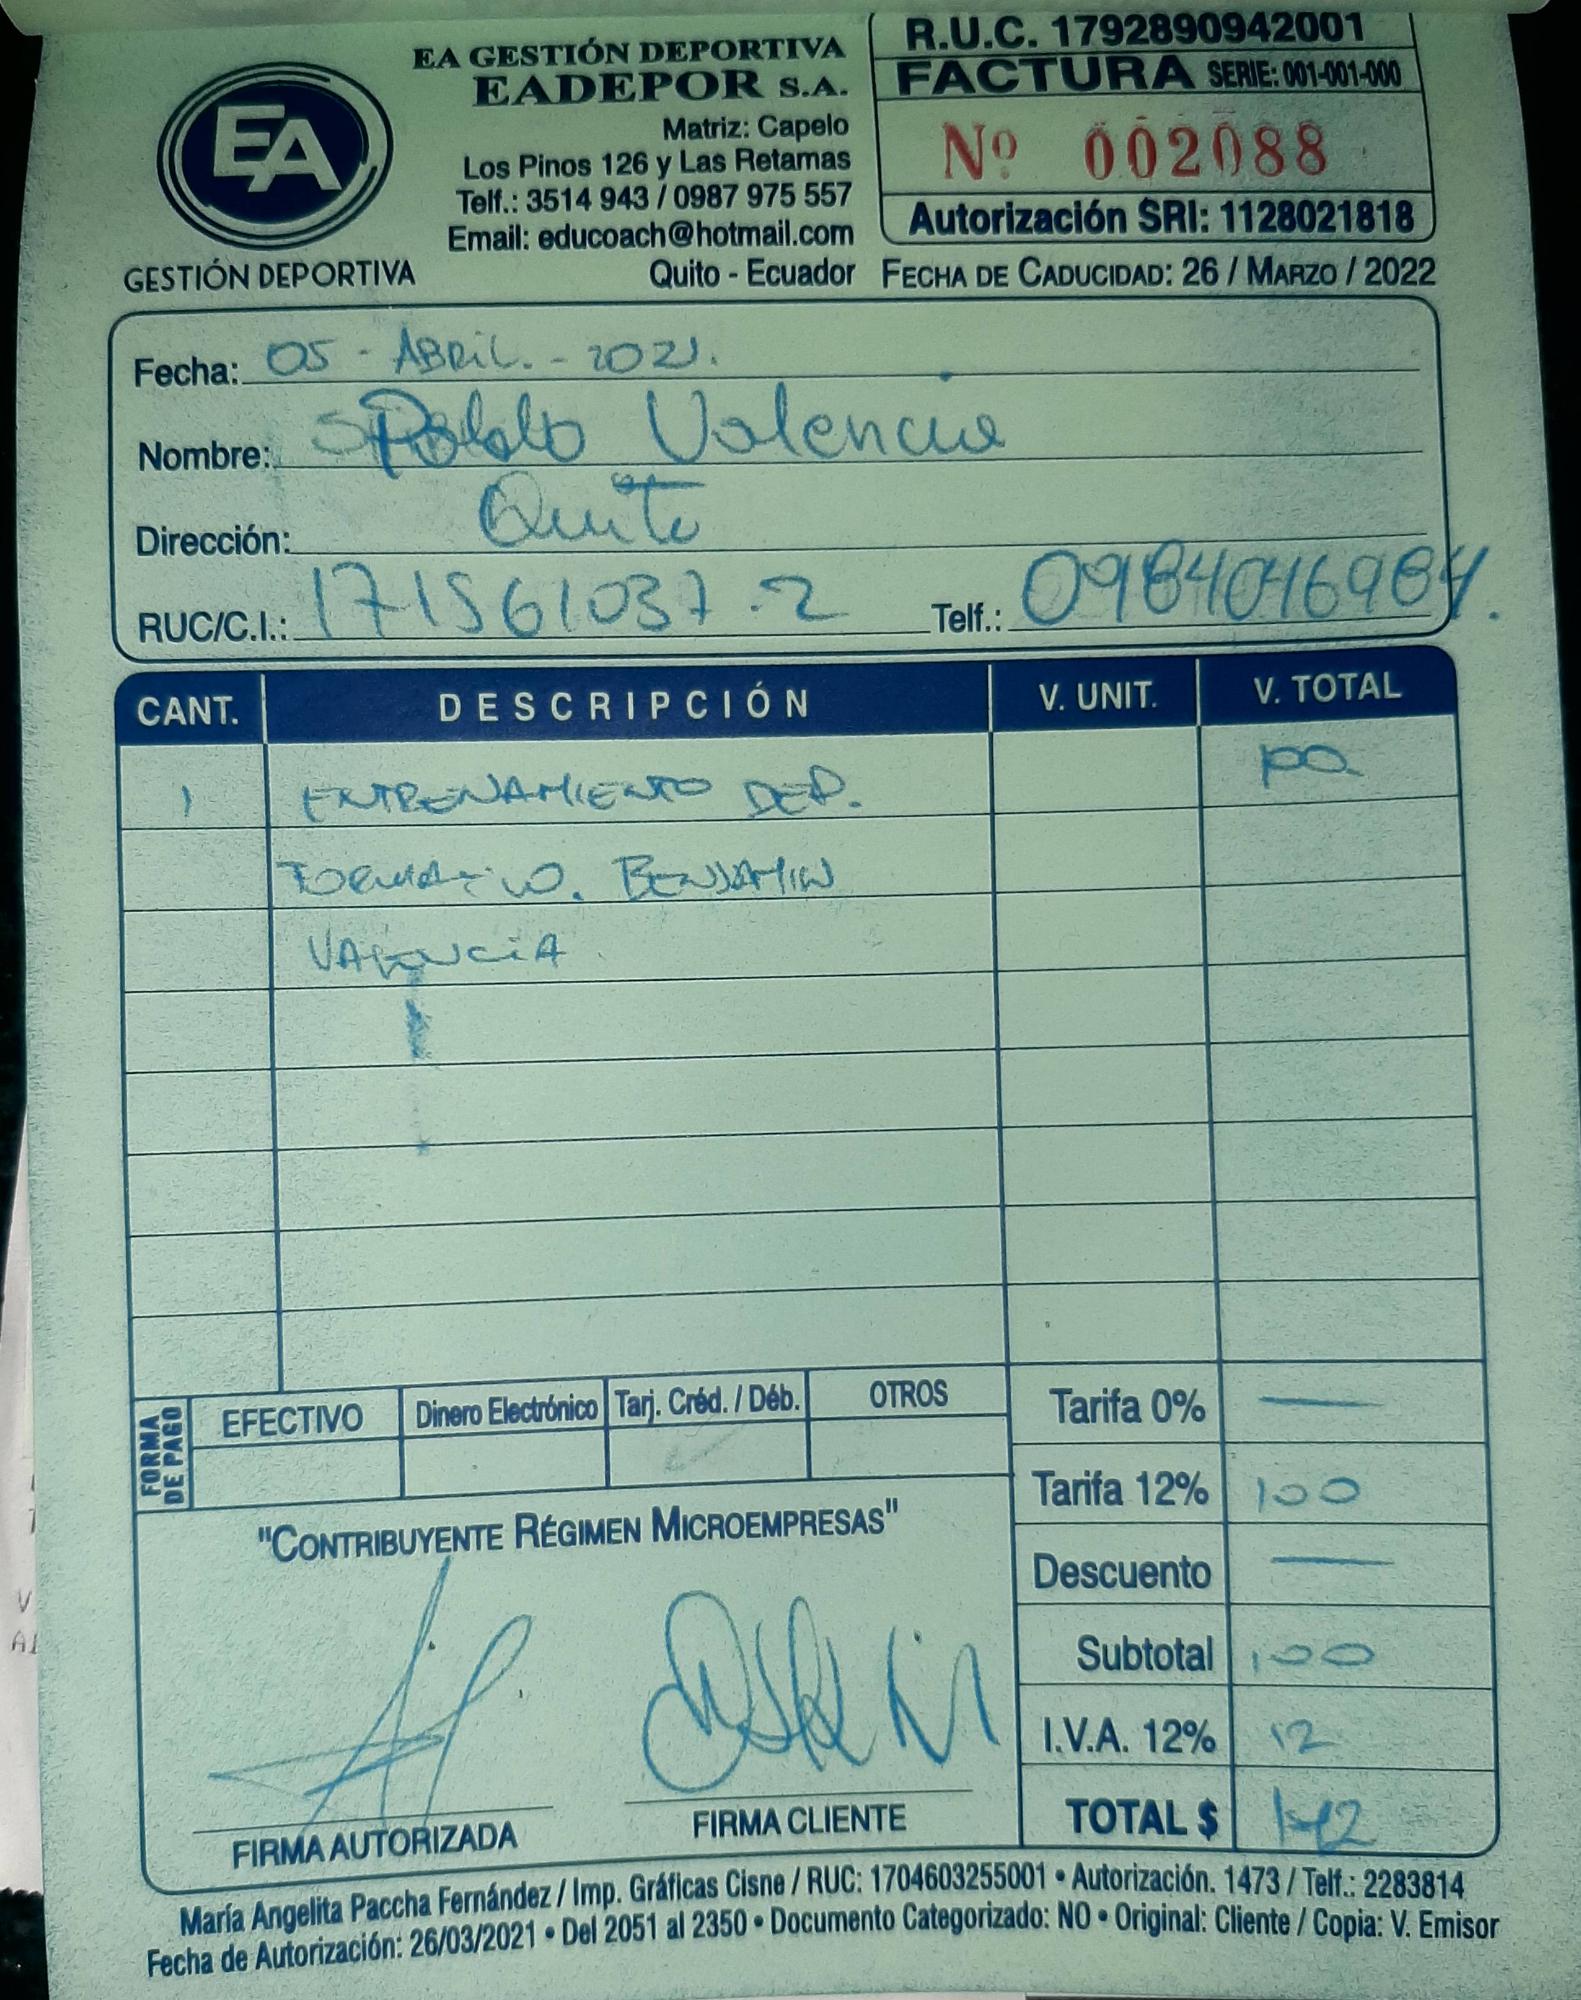 EA GESTIÓN DEPORTIVA
EADEPOR S.A.
Matriz: Capelo
Los Pinos 126 y Las Retamas
Telf.: 3514 943 / 0987 975 557
Email: educoach@hotmail.com
Quito - Ecuador
EA
GESTIÓN DEPORTIVA
R.U.C. 1792890942001
FACTURA SERIE: 001-001-000
Nº 002088
Autorización SRI: 1128021818
FECHA DE CADUCIDAD: 26 / MARZO / 2022
Fecha: 05 - ABRIL. - 2021.
Nombre: Pablo Valencia
Dirección: Quito
RUC/C.I.: 171561037-2 Telf.: 0984046984.
CANT. DESCRIPCIÓN V. UNIT. V. TOTAL
1 ENTRENAMIENTO DEP. 100
FORMATIVO. BENJAMIN
VALENCIA
FORMA DE PAGO
EFECTIVO Dinero Electrónico Tarj. Créd. / Déb. OTROS
Tarifa 0% —
Tarifa 12% 100
Descuento —
Subtotal 100
I.V.A. 12% 12
TOTAL $ 112
"CONTRIBUYENTE RÉGIMEN MICROEMPRESAS"
FIRMA AUTORIZADA FIRMA CLIENTE
María Angelita Paccha Fernández / Imp. Gráficas Cisne / RUC: 1704603255001 • Autorización. 1473 / Telf.: 2283814
Fecha de Autorización: 26/03/2021 • Del 2051 al 2350 • Documento Categorizado: NO • Original: Cliente / Copia: V. Emisor